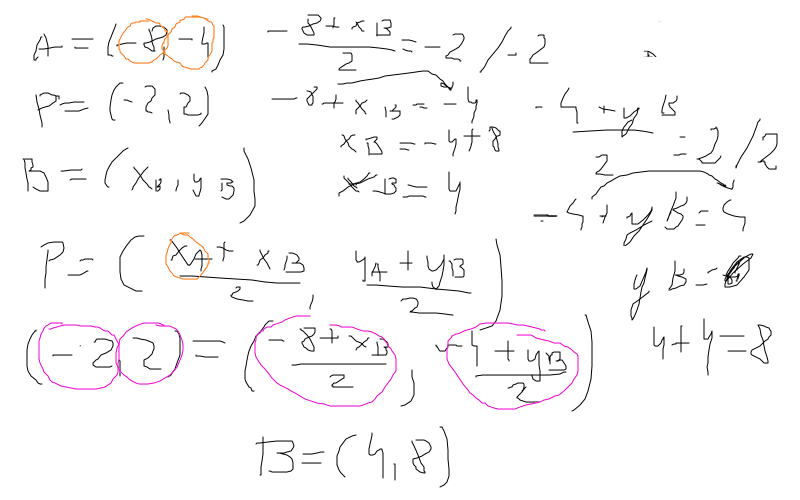 A = (-8, -4)
P = (-2, 2)
B = (xB, yB)
P = (xA + xB / 2, yA + yB / 2)
(-2, 2) = (-8 + xB / 2, -4 + yB / 2)
B = (4, 8)
-8 + xB / 2 = -2 / ·2
-8 + xB = -4
xB = -4 + 8
xB = 4
-4 + yB / 2 = 2 / 2
-4 + yB = 4
yB =
4 + 4 = 8